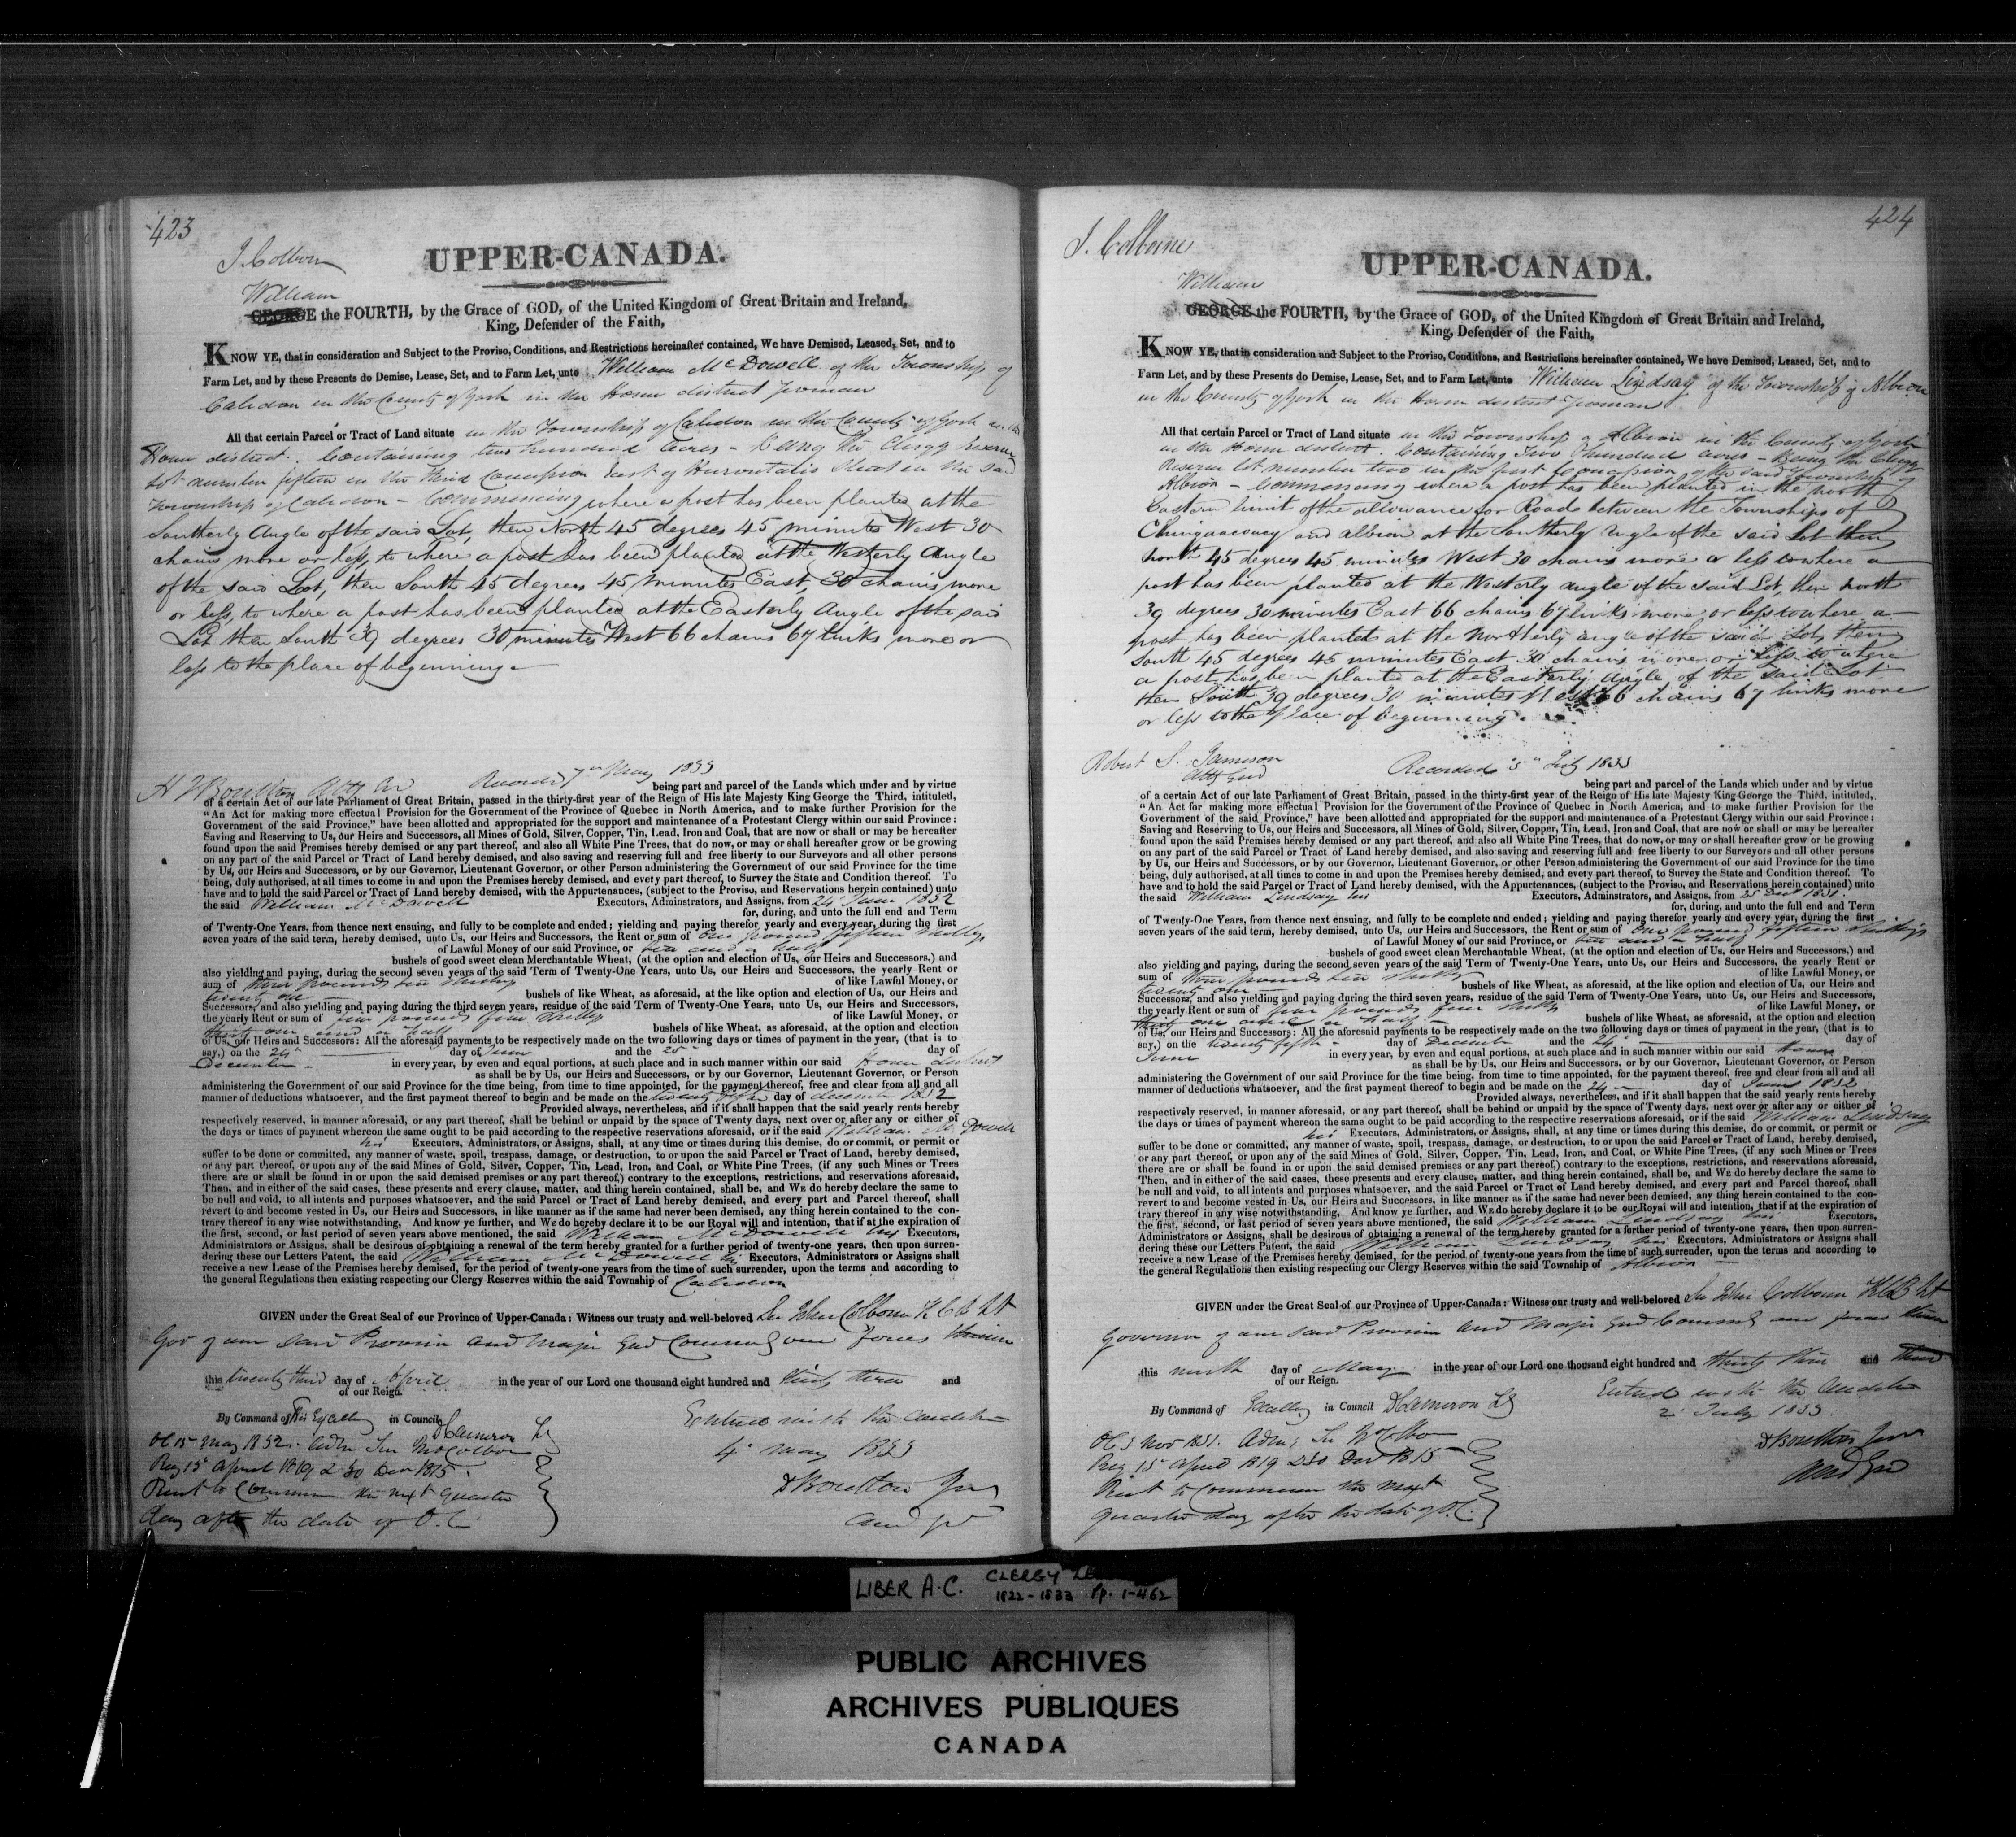 423
J. Colborne
UPPER-CANADA.
William
GEORGE the FOURTH, by the Grace of GOD, of the United Kingdom of Great Britain and Ireland,
King, Defender of the Faith,
KNOW YE, that in consideration and Subject to the Proviso, Conditions, and Restrictions hereinafter contained, We have Demised, Leased, Set, and to
Farm Let, and by these Presents do Demise, Lease, Set, and to Farm Let, unto William McDowell of the Township of
Caledon in the County of York in the Home district Yeoman
All that certain Parcel or Tract of Land situate in the Township of Caledon in the County of York in the
Home district. Containing two hundred acres - being the Clergy Reserve
Lot number fifteen in the third Concession East of Hurontario Street in the said
Township of Caledon - Commencing where a post has been planted at the
Southerly Angle of the said Lot, then North 45 degrees 45 minutes West 30
chains more or less, to where a post has been planted at the Westerly Angle
of the said Lot, then South 45 degrees 45 minutes East, 30 chains more
or less, to where a post has been planted at the Easterly Angle of the said
Lot then South 39 degrees 30 minutes West 66 chains 67 links more or
less to the place of beginning
H J Boulton Atty Gen Recorded 7th May 1833
being part and parcel of the Lands which under and by virtue
of a certain Act of our late Parliament of Great Britain, passed in the thirty-first year of the Reign of His late Majesty King George the Third, intituled,
"An Act for making more effectual Provision for the Government of the Province of Quebec in North America, and to make further Provision for the
Government of the said Province," have been allotted and appropriated for the support and maintenance of a Protestant Clergy within our said Province:
Saving and Reserving to Us, our Heirs and Successors, all Mines of Gold, Silver, Copper, Tin, Lead, Iron and Coal, that are now or shall or may be hereafter
found upon the said Premises hereby demised or any part thereof, and also all White Pine Trees, that do now, or may or shall hereafter grow or be growing
on any part of the said Parcel or Tract of Land hereby demised, and also saving and reserving full and free liberty to our Surveyors and all other persons
by Us, our Heirs and Successors, or by our Governor, Lieutenant Governor, or other Person administering the Government of our said Province for the time
being, duly authorised, at all times to come in and upon the Premises hereby demised, and every part thereof, to Survey the State and Condition thereof. To
have and to hold the said Parcel or Tract of Land hereby demised, with the Appurtenances, (subject to the Proviso, and Reservations herein contained) unto
the said William McDowell Executors, Adminstrators, and Assigns, from 24 June 1832
for, during, and unto the full end and Term
of Twenty-One Years, from thence next ensuing, and fully to be complete and ended; yielding and paying therefor, yearly and every year, during the first
seven years of the said term, hereby demised, unto Us, our Heirs and Successors, the Rent or sum of One pound fifteen shillings
of Lawful Money of our said Province, or ten and a half
bushels of good sweet clean Merchantable Wheat, (at the option and election of Us, our Heirs and Successors,) and
also yielding and paying, during the second seven years of the said Term of Twenty-One Years, unto Us, our Heirs and Successors, the yearly Rent or
sum of three pounds ten shillings of like Lawful Money, or
twenty one bushels of like Wheat, as aforesaid, at the like option and election of Us, our Heirs and
Successors, and also yielding and paying during the third seven years, residue of the said Term of Twenty-One Years, unto Us, our Heirs and Successors,
the yearly Rent or sum of five pounds five shillings of like Lawful Money, or
thirty one and a half bushels of like Wheat, as aforesaid, at the option and election
of Us, our Heirs and Successors: All the aforesaid payments to be respectively made on the two following days or times of payment in the year, (that is to
say,) on the 24th day of June and the 25th day of
December in every year, by even and equal portions, at such place and in such manner within our said Home district
as shall be by Us, our Heirs and Successors, or by our Governor, Lieutenant Governor, or Person
administering the Government of our said Province for the time being, from time to time appointed, for the payment thereof, free and clear from all and all
manner of deductions whatsoever, and the first payment thereof to begin and be made on the twenty fifth day of december 1832
Provided always, nevertheless, and if it shall happen that the said yearly rents hereby
respectively reserved, in manner aforesaid, or any part thereof, shall be behind or unpaid by the space of Twenty days, next over or after any or either of
the days or times of payment whereon the same ought to be paid according to the respective reservations aforesaid, or if the said William McDowell
his Executors, Administrators, or Assigns, shall, at any time or times during this demise, do or commit, or permit or
suffer to be done or committed, any manner of waste, spoil, trespass, damage, or destruction, to or upon the said Parcel or Tract of Land, hereby demised,
or any part thereof, or upon any of the said Mines of Gold, Silver, Copper, Tin, Lead, Iron, and Coal, or White Pine Trees, (if any such Mines or Trees
there are or shall be found in or upon the said demised premises or any part thereof,) contrary to the exceptions, restrictions, and reservations aforesaid,
Then, and in either of the said cases, these presents and every clause, matter, and thing herein contained, shall be, and WE do hereby declare the same to
be null and void, to all intents and purposes whatsoever, and the said Parcel or Tract of Land hereby demised, and every part and Parcel thereof, shall
revert to and become vested in Us, our Heirs and Successors, in like manner as if the same had never been demised, any thing herein contained to the con-
trary thereof in any wise notwithstanding. And know ye further, and WE do hereby declare it to be our Royal will and intention, that if at the expiration of
the first, second, or last period of seven years above mentioned, the said William McDowell his Executors,
Administrators or Assigns, shall be desirous of obtaining a renewal of the term hereby granted for a further period of twenty-one years, then upon surren-
dering these our Letters Patent, the said William McDowell his Executors, Administrators or Assigns shall
receive a new Lease of the Premises hereby demised, for the period of twenty-one years from the time of such surrender, upon the terms and according to
the general Regulations then existing respecting our Clergy Reserves within the said Township of Caledon
GIVEN under the Great Seal of our Province of Upper-Canada: Witness our trusty and well-beloved Sir John Colborne K C B Lt
Gov of our said Province and Major Genl Commg our forces therein
this twenty third day of April in the year of our Lord one thousand eight hundred and thirty three and
of our Reign.
By Command of His Excelly in Council DCameron Sy
OC 15 May 1832. Adm Sir J Colborne
Reg 15th April 1819 & 30 Decr 1815.
Rent to Commence the next Quarter
day after the date of O.C.
Entered with the Auditor
4th May 1833
DBoulton Jun
Aud Gl
424
J. Colborne
UPPER-CANADA.
William
GEORGE the FOURTH, by the Grace of GOD, of the United Kingdom of Great Britain and Ireland,
King, Defender of the Faith,
KNOW YE, that in consideration and Subject to the Proviso, Conditions, and Restrictions hereinafter contained, We have Demised, Leased, Set, and to
Farm Let, and by these Presents do Demise, Lease, Set, and to Farm Let, unto William Lindsay of the Township of Albion
in the County of York in the Home district Yeoman
All that certain Parcel or Tract of Land situate in the Township of Albion in the County of York
in the Home district. Containing Two hundred acres - Being the Clergy
Reserve lot number two in the first Concession of the said Township of
Albion - Commencing where a post has been planted in the North
Eastern limit of the allowance for Road between the Townships of
Chinguacousy and Albion at the Southerly angle of the said Lot then
North 45 degrees 45 minutes West 30 chains more or less to where a
post has been planted at the Westerly angle of the said Lot, then North
39 degrees 30 minutes East 66 chains 67 links more or less to where a
post has been planted at the Northerly angle of the said Lot, then
South 45 degrees 45 minutes East 30 chains more or less to where
a post has been planted at the Easterly angle of the said Lot
then South 39 degrees 30 minutes West 66 chains 67 links more
or less to the place of beginning.
Robert S. Jameson Recorded 5th July 1833
Atty Genl
being part and parcel of the Lands which under and by virtue
of a certain Act of our late Parliament of Great Britain, passed in the thirty-first year of the Reign of His late Majesty King George the Third, intituled,
"An Act for making more effectual Provision for the Government of the Province of Quebec in North America, and to make further Provision for the
Government of the said Province," have been allotted and appropriated for the support and maintenance of a Protestant Clergy within our said Province:
Saving and Reserving to Us, our Heirs and Successors, all Mines of Gold, Silver, Copper, Tin, Lead, Iron and Coal, that are now or shall or may be hereafter
found upon the said Premises hereby demised or any part thereof, and also all White Pine Trees, that do now, or may or shall hereafter grow or be growing
on any part of the said Parcel or Tract of Land hereby demised, and also saving and reserving full and free liberty to our Surveyors and all other persons
by Us, our Heirs and Successors, or by our Governor, Lieutenant Governor, or other Person administering the Government of our said Province for the time
being, duly authorised, at all times to come in and upon the Premises hereby demised, and every part thereof, to Survey the State and Condition thereof. To
have and to hold the said Parcel or Tract of Land hereby demised, with the Appurtenances, (subject to the Proviso, and Reservations herein contained) unto
the said William Lindsay his Executors, Adminstrators, and Assigns, from 25 Decr 1831.
for, during, and unto the full end and Term
of Twenty-One Years, from thence next ensuing, and fully to be complete and ended; yielding and paying therefor, yearly and every year, during the first
seven years of the said term, hereby demised, unto Us, our Heirs and Successors, the Rent or sum of One pound fifteen shillings
of Lawful Money of our said Province, or ten and a half
bushels of good sweet clean Merchantable Wheat, (at the option and election of Us, our Heirs and Successors,) and
also yielding and paying, during the second seven years of the said Term of Twenty-One Years, unto Us, our Heirs and Successors, the yearly Rent or
sum of three pounds ten shillings of like Lawful Money, or
twenty one bushels of like Wheat, as aforesaid, at the like option and election of Us, our Heirs and
Successors, and also yielding and paying during the third seven years, residue of the said Term of Twenty-One Years, unto Us, our Heirs and Successors,
the yearly Rent or sum of five pounds five shillings of like Lawful Money, or
thirty one and a half bushels of like Wheat, as aforesaid, at the option and election
of Us, our Heirs and Successors: All the aforesaid payments to be respectively made on the two following days or times of payment in the year, (that is to
say,) on the twenty fifth day of December and the 24th day of
June in every year, by even and equal portions, at such place and in such manner within our said Home
as shall be by Us, our Heirs and Successors, or by our Governor, Lieutenant Governor, or Person
administering the Government of our said Province for the time being, from time to time appointed, for the payment thereof, free and clear from all and all
manner of deductions whatsoever, and the first payment thereof to begin and be made on the 24 day of June 1832
Provided always, nevertheless, and if it shall happen that the said yearly rents hereby
respectively reserved, in manner aforesaid, or any part thereof, shall be behind or unpaid by the space of Twenty days, next over or after any or either of
the days or times of payment whereon the same ought to be paid according to the respective reservations aforesaid, or if the said William Lindsay
his Executors, Administrators, or Assigns, shall, at any time or times during this demise, do or commit, or permit or
suffer to be done or committed, any manner of waste, spoil, trespass, damage, or destruction, to or upon the said Parcel or Tract of Land, hereby demised,
or any part thereof, or upon any of the said Mines of Gold, Silver, Copper, Tin, Lead, Iron, and Coal, or White Pine Trees, (if any such Mines or Trees
there are or shall be found in or upon the said demised premises or any part thereof,) contrary to the exceptions, restrictions, and reservations aforesaid,
Then, and in either of the said cases, these presents and every clause, matter, and thing herein contained, shall be, and WE do hereby declare the same to
be null and void, to all intents and purposes whatsoever, and the said Parcel or Tract of Land hereby demised, and every part and Parcel thereof, shall
revert to and become vested in Us, our Heirs and Successors, in like manner as if the same had never been demised, any thing herein contained to the con-
trary thereof in any wise notwithstanding. And know ye further, and WE do hereby declare it to be our Royal will and intention, that if at the expiration of
the first, second, or last period of seven years above mentioned, the said William Lindsay his Executors,
Administrators or Assigns, shall be desirous of obtaining a renewal of the term hereby granted for a further period of twenty-one years, then upon surren-
dering these our Letters Patent, the said William Lindsay his Executors, Administrators or Assigns shall
receive a new Lease of the Premises hereby demised, for the period of twenty-one years from the time of such surrender, upon the terms and according to
the general Regulations then existing respecting our Clergy Reserves within the said Township of Albion
GIVEN under the Great Seal of our Province of Upper-Canada: Witness our trusty and well-beloved Sir John Colborne KCB Lt
Governor of our said Province and Major Genl Commg our forces therein
this ninth day of May in the year of our Lord one thousand eight hundred and thirty three and third
of our Reign.
By Command of Excelly in Council DCameron Sy
OC 3 Nov 1831. Adm; Sir J Colborne
Reg 15th April 1819 & 30 Decr 1815
Rent to Commence the next
quarter day after the date of O.C.
Entered with the Auditor
2d July 1833.
DBoulton Junr
Aud Genl
LIBER A.C. CLERGY
1822-1833 Pp. 1-462
PUBLIC ARCHIVES
ARCHIVES PUBLIQUES
CANADA